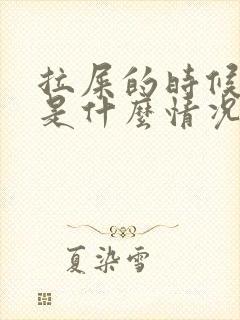 拉屎的時候
是什麼情況
夏染雪